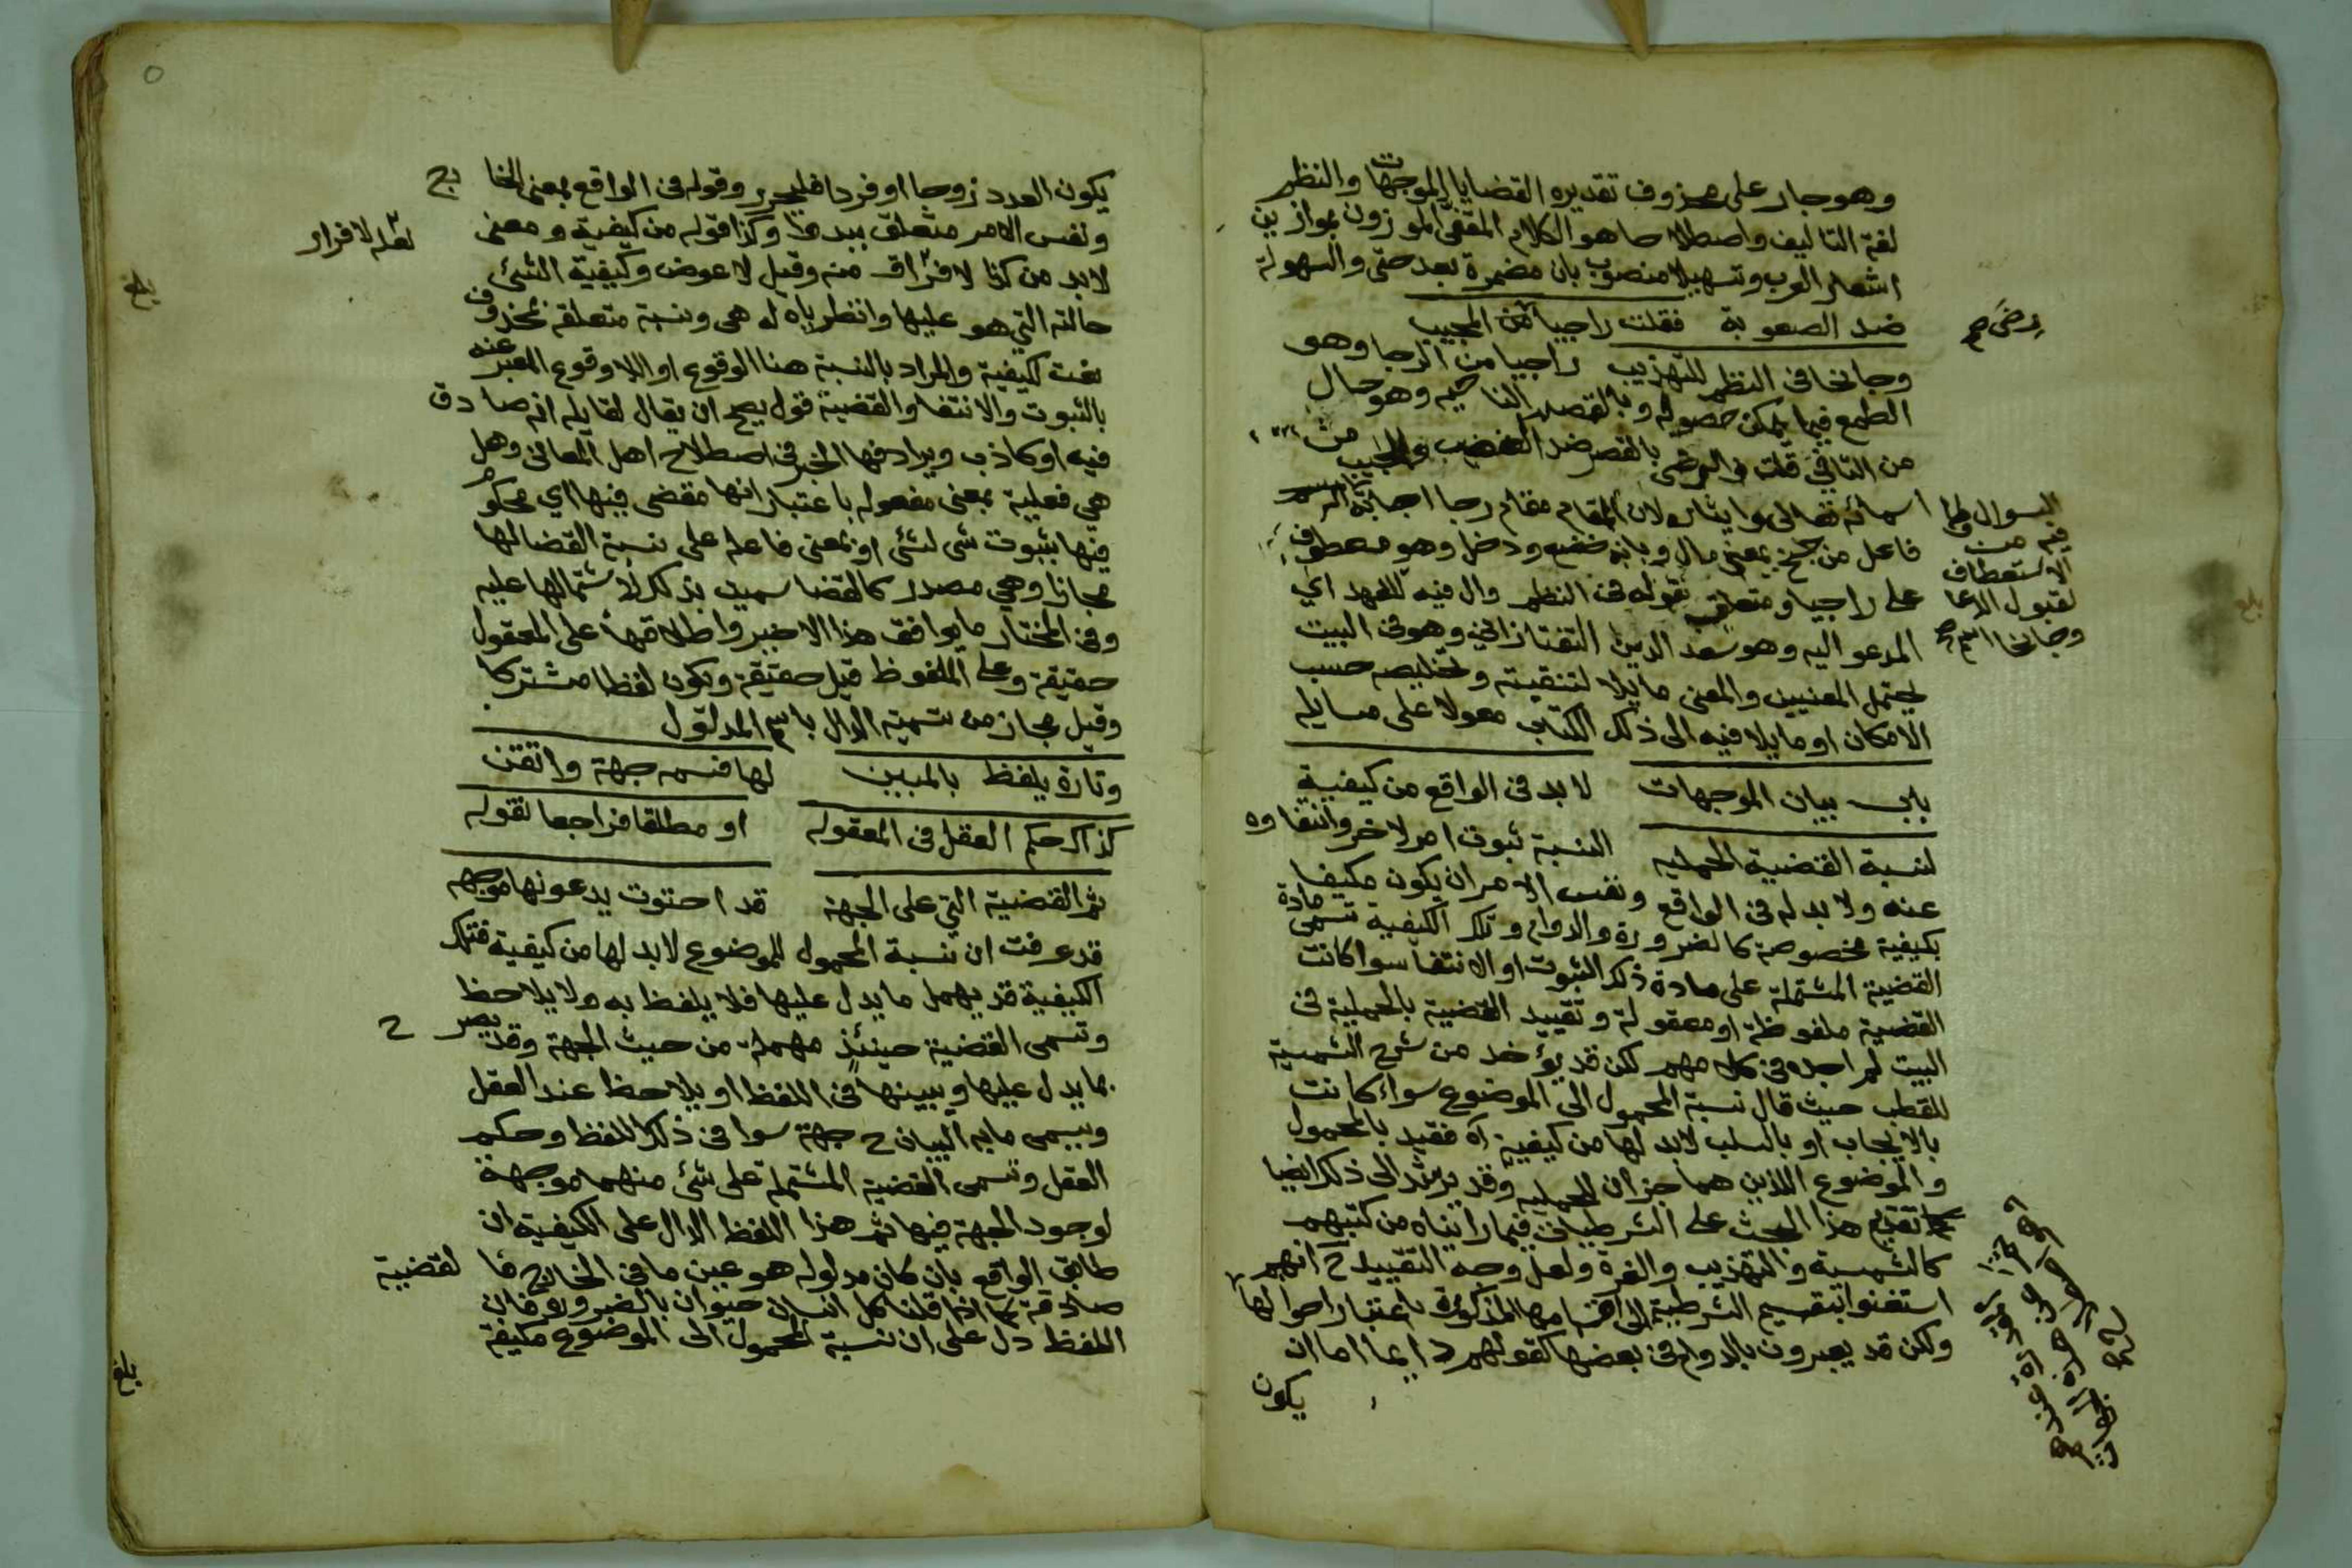 وهو جار على محذوف تقديره القضايا الموجهات والنظم
لغة التاليف واصطلاحا هو الكلام المقفى الموزون بموازين
اشعار العرب وتسهيلا منصوب بان مضمرة بعد حتى والسهولة
ضد الصعوبة فقلت راجيا من المجيب
رضى صح
وجانحا في النظم للتهذيب راجيا من الرجا وهو
الطمع فيما يمكن حصوله وبالقصر الناحية وهو حال
من التا في قلت والرضى بالقصر ضد الغضب والمجيب من
اسمائه تعالى وايثاره لان المقام مقام رجا اجابة
السوال ولما
فيه من
الاستعطاف
لقبول الدعا
وجانحا اسم
فاعل من جنح بمعنى مال وبابه خضع ودخل وهو معطوف
على راجيا ومتعلق بقوله في النظم وال فيه للعهد اي
المدعو اليه وهو سعد الدين التفتازاني وهو في البيت
يحتمل المعنيين والمعنى مايلا لتنقيته وتخليصه حسب
الامكان او مايلا فيه الى ذلك الكتاب معولا على مسايله
باب بيان الموجهات لا بد في الواقع من كيفية
لنسبة القضية الحملية النسبة ثبوت امر لاخر وانتفاوه
عنه ولا بد له في الواقع ونفس الامر ان يكون مكيفا
بكيفية مخصوصة كالضرورة والدوام وتلك الكيفية تسمى مادة
القضية المشتملة على مادة ذلك الثبوت او الانتفا سوا كانت
القضية ملفوظة او معقولة وتقييد القضية بالحملية في
البيت لم اجده في كلامهم لكن قد يؤخذ من شرح الشمسية
للقطب حيث قال نسبة المحمول الى الموضوع سواء كانت
بالايجاب او بالسلب لابد لها من كيفية اه فقيد بالمحمول
والموضوع اللذين هما جزان للحملية وقد يرشد الى ذلك ايضا
تقديم هذا البحث على الشرطيات فيما رايناه من كتبهم
كالشمسية والتهذيب والغرة ولعل وجه التقييد ح انهم
استغنوا بتقسيم الشرطية الى اقسامها المذكورة باعتبار احوالها
ولكن قد يعبرون بالدوام في بعضها كقولهم دايما اما ان
يكون
يكون العدد زوجا او فردا فليحرر وقوله في الواقع بمعنى الخارج
ونفس الامر متعلق ببد وكذا قوله من كيفية ومعنى
لعله لا فرار
لابد من كذا لا فراق منه وقيل لا عوض وكيفية الشيئ
حالته التي هو عليها وانظر ياه له هي ونسبة متعلقة بمحذوف
نعت لكيفية والمراد بالنسبة هنا الوقوع او اللا وقوع المعبر عنه
بالثبوت والانتفا والقضية قول يصح ان يقال لقايله انه صادق
فيه او كاذب ويرادفها الخبر في اصطلاح اهل المعاني وهل
هي فعلية بمعنى مفعوله باعتبار انها مقضى فيها اي محكوم
فيها بثبوت شي لشئ او بمعنى فاعله على نسبة القضا لها
مجازا وهي مصدر كالقضا سميت بذلك لاشتمالها عليه
وفي المختار ما يوافق هذا الاخير واطلاقها على المعقول
حقيقة وعلى الملفوظ قيل حقيقة ويكون لفظا مشتركا
وقيل مجاز من تسمية الدال باسم المدلول
وتارة يلفظ بالمبين لها فسمه جهة واتقن
كذاك حكم العقل في المعقوله او مطلقا فراجعا لقوله
ثم القضية التي على الجهة قد احتوت يدعونها موجهه
قد عرفت ان نسبة المحمول للموضوع لابد لها من كيفية فتلك
الكيفية قد يهمل ما يدل عليها فلا يلفظ به ولا يلاحظ
وتسمى القضية حينئذ مهملة من حيث الجهة وقد يصرح
بما يدل عليها ويبينها في اللفظ او يلاحظ عند العقل
ويسمى ما به البيان ح جهة سوا في ذلك اللفظ وحكم
العقل وتسمى القضية المشتملة على شئ منهما موجهة
لوجود الجهة فيها ثم هذا اللفظ الدال على الكيفية ان
طابق الواقع بان كان مدلوله هو عين ما في الخارج فالقضية
صادقة كما اذا قلنا كل انسان حيوان بالضرورة فان
اللفظ دل على ان نسبة المحمول الى الموضوع مكيفة
بلغ